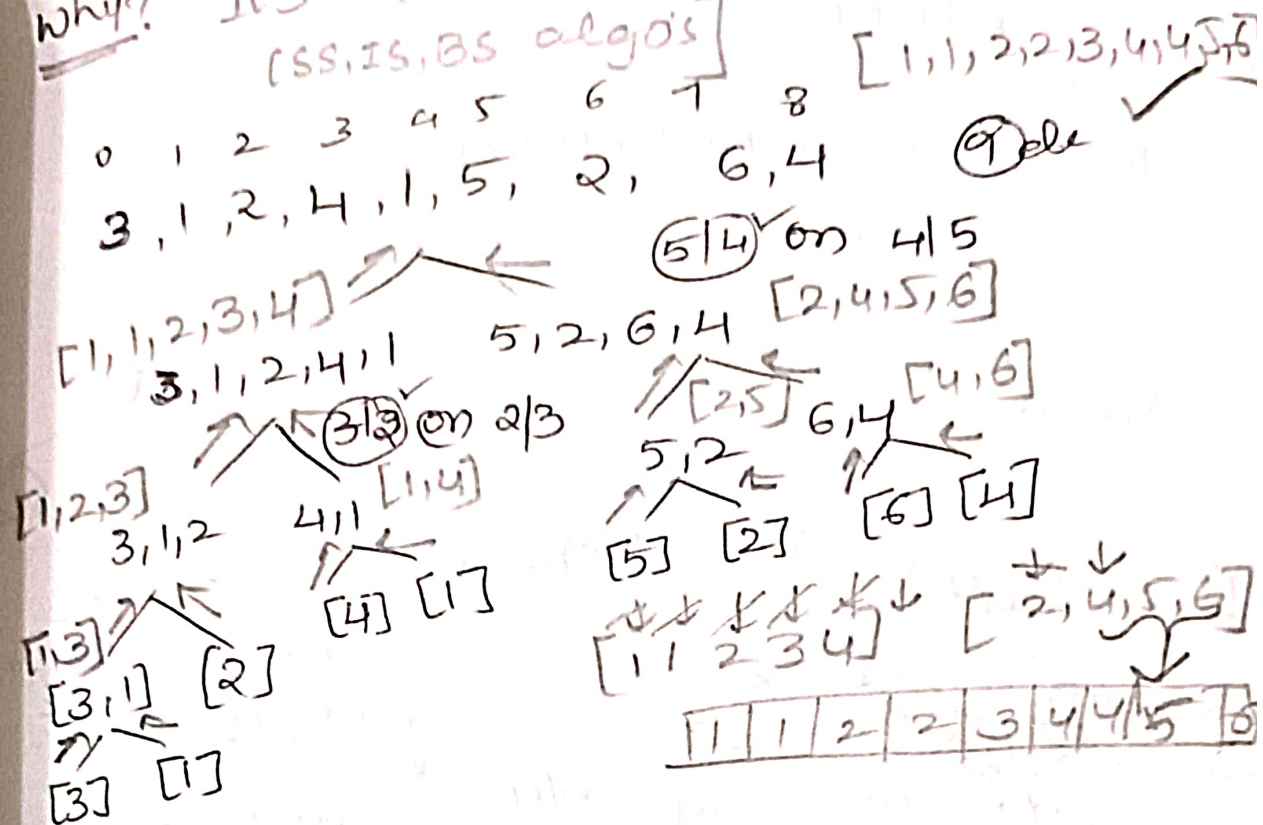 Why?
[SS, IS, BS algo's]
[1,1,2,2,3,4,4,5,6]
0 1 2 3 4 5 6 7 8
3,1,2,4,1,5,2,6,4
9 ele
5|4 or 4|5
[1,1,2,3,4]
[2,4,5,6]
3,1,2,4,1
5,2,6,4
3|2 or 2|3
[2,5]
[4,6]
6,4
5,2
[1,2,3]
[1,4]
3,1,2
4,1
[5] [2]
[6] [4]
[4] [1]
[1,3]
[3,1] [2]
[1 1 2 3 4]
[2,4,5,6]
1 1 2 2 3 4 4 5 6
[3] [1]